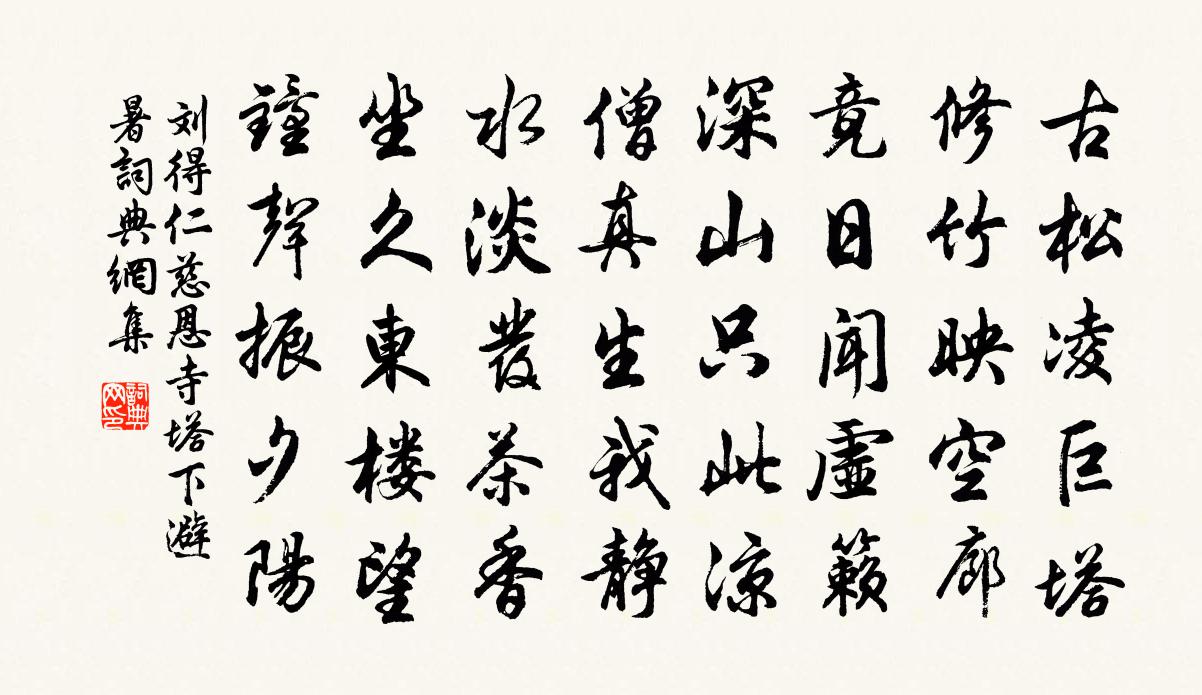 古松凌巨塔
修竹映空廊
竟日闻虛籟
深山只此涼
僧真生我静
水淡發茶香
坐久東楼望
鐘聲振夕陽
刘得仁慈恩寺塔下避
暑詞典網集
詞典网印